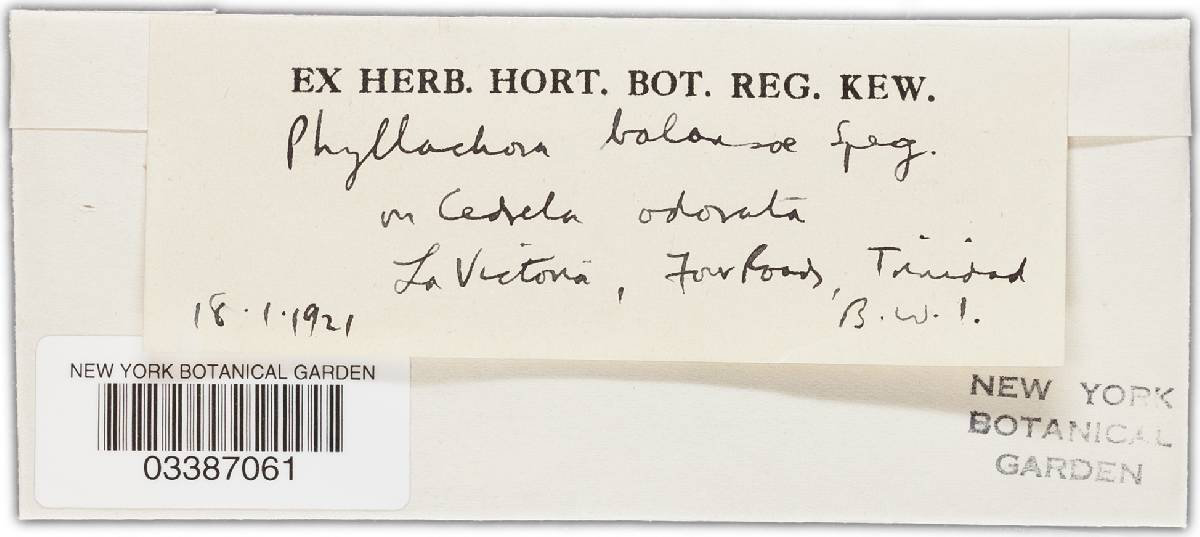 EX HERB. HORT. BOT. REG. KEW.
Phyllachora balansae Speg.
on Cedrela odorata
La Victoria, Four Roads, Trinidad
18.1.1921 B.W.I.
NEW YORK BOTANICAL GARDEN
03387061
NEW YORK
BOTANICAL
GARDEN